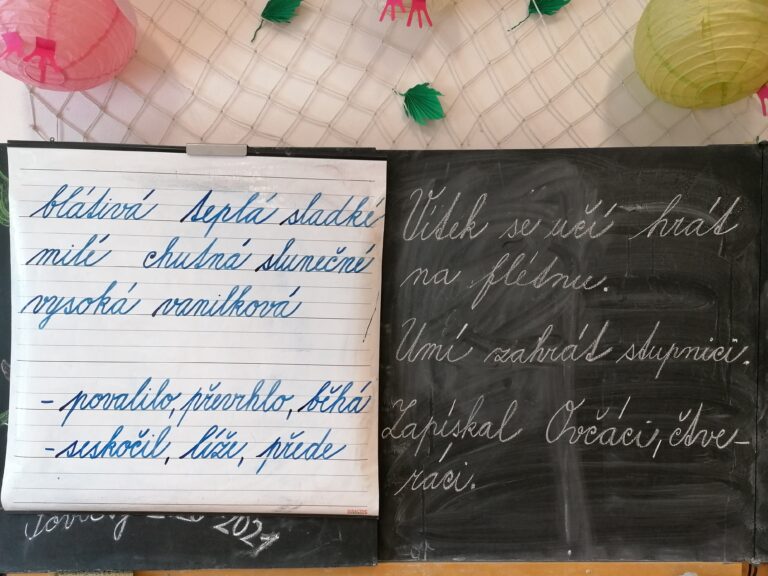 blátivá teplá sladké
milé chutná slunečné
vysoká vanilková
- povalilo, převrhlo, běhá
- seskočil, líže, přede
Vítek se učí hrát
na flétnu.
Umí zahrát stupnici.
Zapískal Ovčáci, čtve-
ráci.
2021